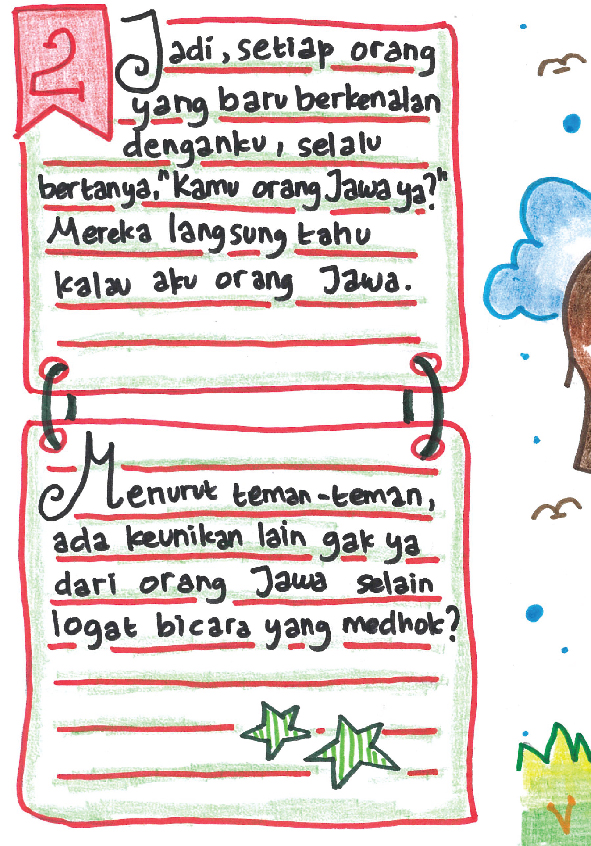 2
Jadi, setiap orang
yang baru berkenalan
denganku, selalu
bertanya, "Kamu orang Jawa ya?"
Mereka langsung tahu
kalau aku orang Jawa.
Menurut teman-teman,
ada keunikan lain gak ya
dari orang Jawa selain
logat bicara yang medhok?